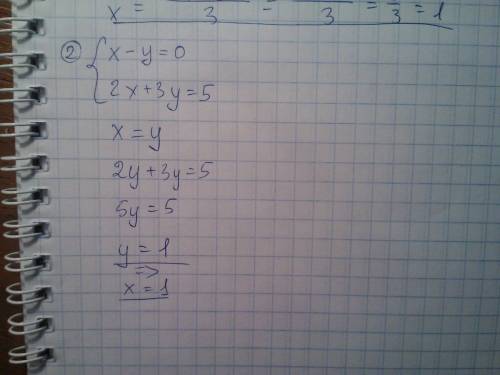 x = 3 - 3 = 3 = 1
② { x - y = 0
2x + 3y = 5
x = y
2y + 3y = 5
5y = 5
y = 1
=>
x = 1